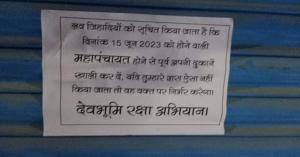 लव जिहादियों को सूचित किया जाता है कि
दिनांक 15 जून 2023 को होने वाली
महापंचायत होने से पूर्व अपनी दुकानें
खाली कर दें, यदि तुम्हारे द्वारा ऐसा नहीं
किया जाता तो वह वक्त पर निर्भर करेगा।
देवभूमि रक्षा अभियान।